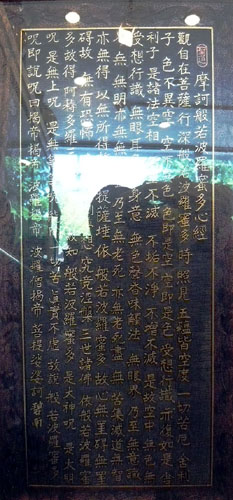 摩訶般若波羅蜜多心經
觀自在菩薩行深般若波羅蜜多時照見五蘊皆空度一切苦厄舍利
子色不異空空不異色色即是空空即是色受想行識亦復如是舍
利子是諸法空相不滅不垢不淨不增不減是故空中無色無
受想行識無眼耳身意無色聲香味觸法無眼界乃至無意識
界無無明亦無無明乃至無老死亦無老死盡無苦集滅道無智
亦無得以無所得提薩埵依般若波羅蜜多故心無罣礙無罣
礙故無有恐怖想究竟涅槃三世諸佛依般若波羅蜜
多故得阿耨多羅三故知般若波羅蜜多是大神呪是大明
呪是無上呪是無等一切苦真實不虛故說般若波羅蜜多
呪即說呪曰揭帝揭帝波羅揭帝波羅僧揭帝菩提娑婆訶